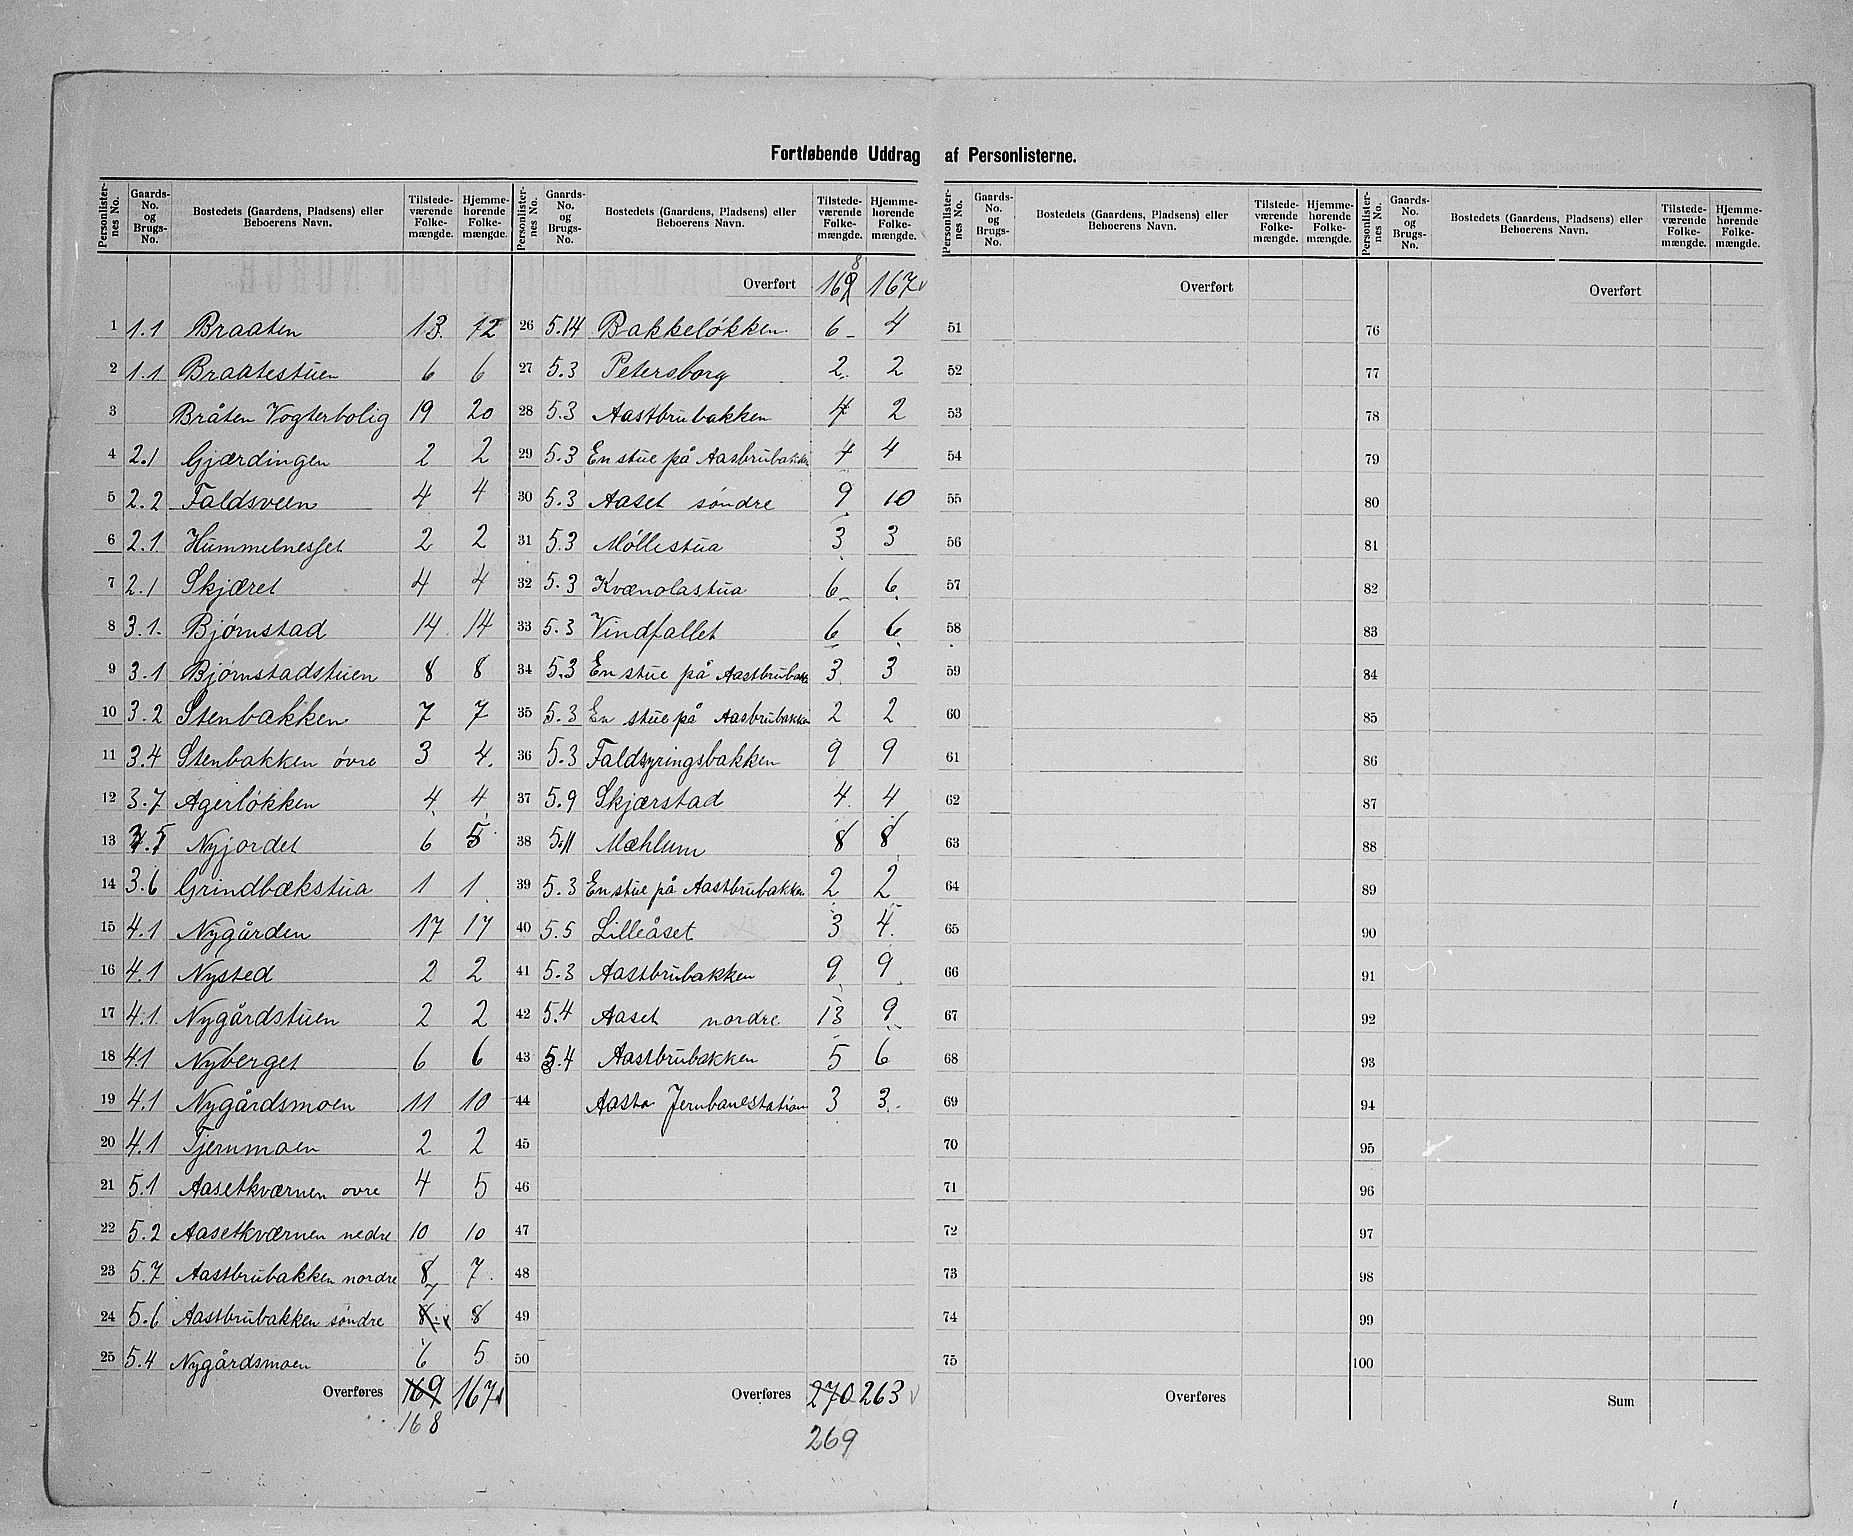 Fortløbende Uddrag af Personlisterne.
Personlisternes No. | Gaards-No. og Brugs-No. | Bostedets (Gaardens, Pladsens) eller Beboerens Navn. | Tilstedeværende Folkemængde. | Hjemmehørende Folkemængde.
1 | 1.1 | Braaten | 13 | 12
2 | 1.1 | Braatestuen | 6 | 6
3 | | Bråten Vogterbolig | 19 | 20
4 | 2.1 | Gjærdingen | 2 | 2
5 | 2.2 | Faldsveen | 4 | 4
6 | 2.1 | Hummelnesset | 2 | 2
7 | 2.1 | Skjæret | 4 | 4
8 | 3.1. | Bjørnstad | 14 | 14
9 | 3.1 | Bjørnstadstuen | 8 | 8
10 | 3.2 | Stenbakken | 7 | 7
11 | 3.4 | Stenbakken övre | 3 | 4.
12 | 3.7 | Agerlökken | 4 | 4
13 | | Nyjordet | 6 | 5
14 | 3.6 | Grindbækstua | 1 | 1
15 | 4.1 | Nygården | 17 | 17
16 | 4.1 | Nysted | 2 | 2
17 | 4.1. | Nygårdstuen | 2 | 2
18 | 4.1 | Nyberget | 6 | 6
19 | 4.1 | Nygårdsmoen | 11 | 10
20 | 4.1 | Tjernmoen | 2 | 2
21 | 5.1 | Aasetkværnen ovre | 4 | 5
22 | 5.2 | Aasetkværnen nedre | 10 | 10
23 | 5.7 | Aastbrubakken nordre | 8 | 7.
24 | 5.6 | Aastbrubakken söndre | 8 7 | 8
25 | 5.4 | Nygårdsmoen | 6 | 5
Overføres 169 167
168
Personlisternes No. | Gaards-No. og Brugs-No. | Bostedets (Gaardens, Pladsens) eller Beboerens Navn. | Tilstedeværende Folkemængde. | Hjemmehørende Folkemængde.
Overført 169 8 167
26 | 5.14 | Bakkelökken | 6 | 4
27 | 5.3 | Petersborg | 2. | 2
28 | 5.3 | Aastbrubakken | 4 | 2
29 | 5.3 | En stue på Aasbrubakken | 4 | 4
30 | 5.3 | Aaset söndre | 9 | 10
31 | 5.3 | Möllestua | 3 | 3
32 | 5.3 | Kvænolastua | 6 | 6.
33 | 5.3 | Vindfallet | 6 | 6
34 | 5.3 | En stue på Aastbrubakk | 3 | 3
35 | 5.3 | En stue på Aasbrubakken | 2 | 2
36 | 5.3 | Faldsyringsbakken | 9 | 9
37 | 5.9 | Skjærstad | 4. | 4
38 | 5.11 | Mæhlum | 8 | 8
39 | 5.3 | En stue på Aastbrubakken | 2 | 2
40 | 5.5 | Lilleåset | 3 | 4.
41 | 5.3 | Aastbrubakken | 9 | 9
42 | 5.4 | Aaset nordre | 13 | 9
43 | 5.4 | Aastbrubakken | 5 | 6
44 | | Aasta Jernbanestation | 3 | 3.
45
46
47
48
49
50
Overføres 270 263
269
Personlisternes No. | Gaards-No. og Brugs-No. | Bostedets (Gaardens, Pladsens) eller Beboerens Navn. | Tilstedeværende Folkemængde. | Hjemmehørende Folkemængde.
Overført
51
52
53
54
55
56
57
58
59
60
61
62
63
64
65
66
67
68
69
70
71
72
73
74
75
Overføres
Personlisternes No. | Gaards-No. og Brugs-No. | Bostedets (Gaardens, Pladsens) eller Beboerens Navn. | Tilstedeværende Folkemængde. | Hjemmehørende Folkemængde.
Overført
76
77
78
79
80
81
82
83
84
85
86
87
88
89
90
91
92
93
94
95
96
97
98
99
100
Sum